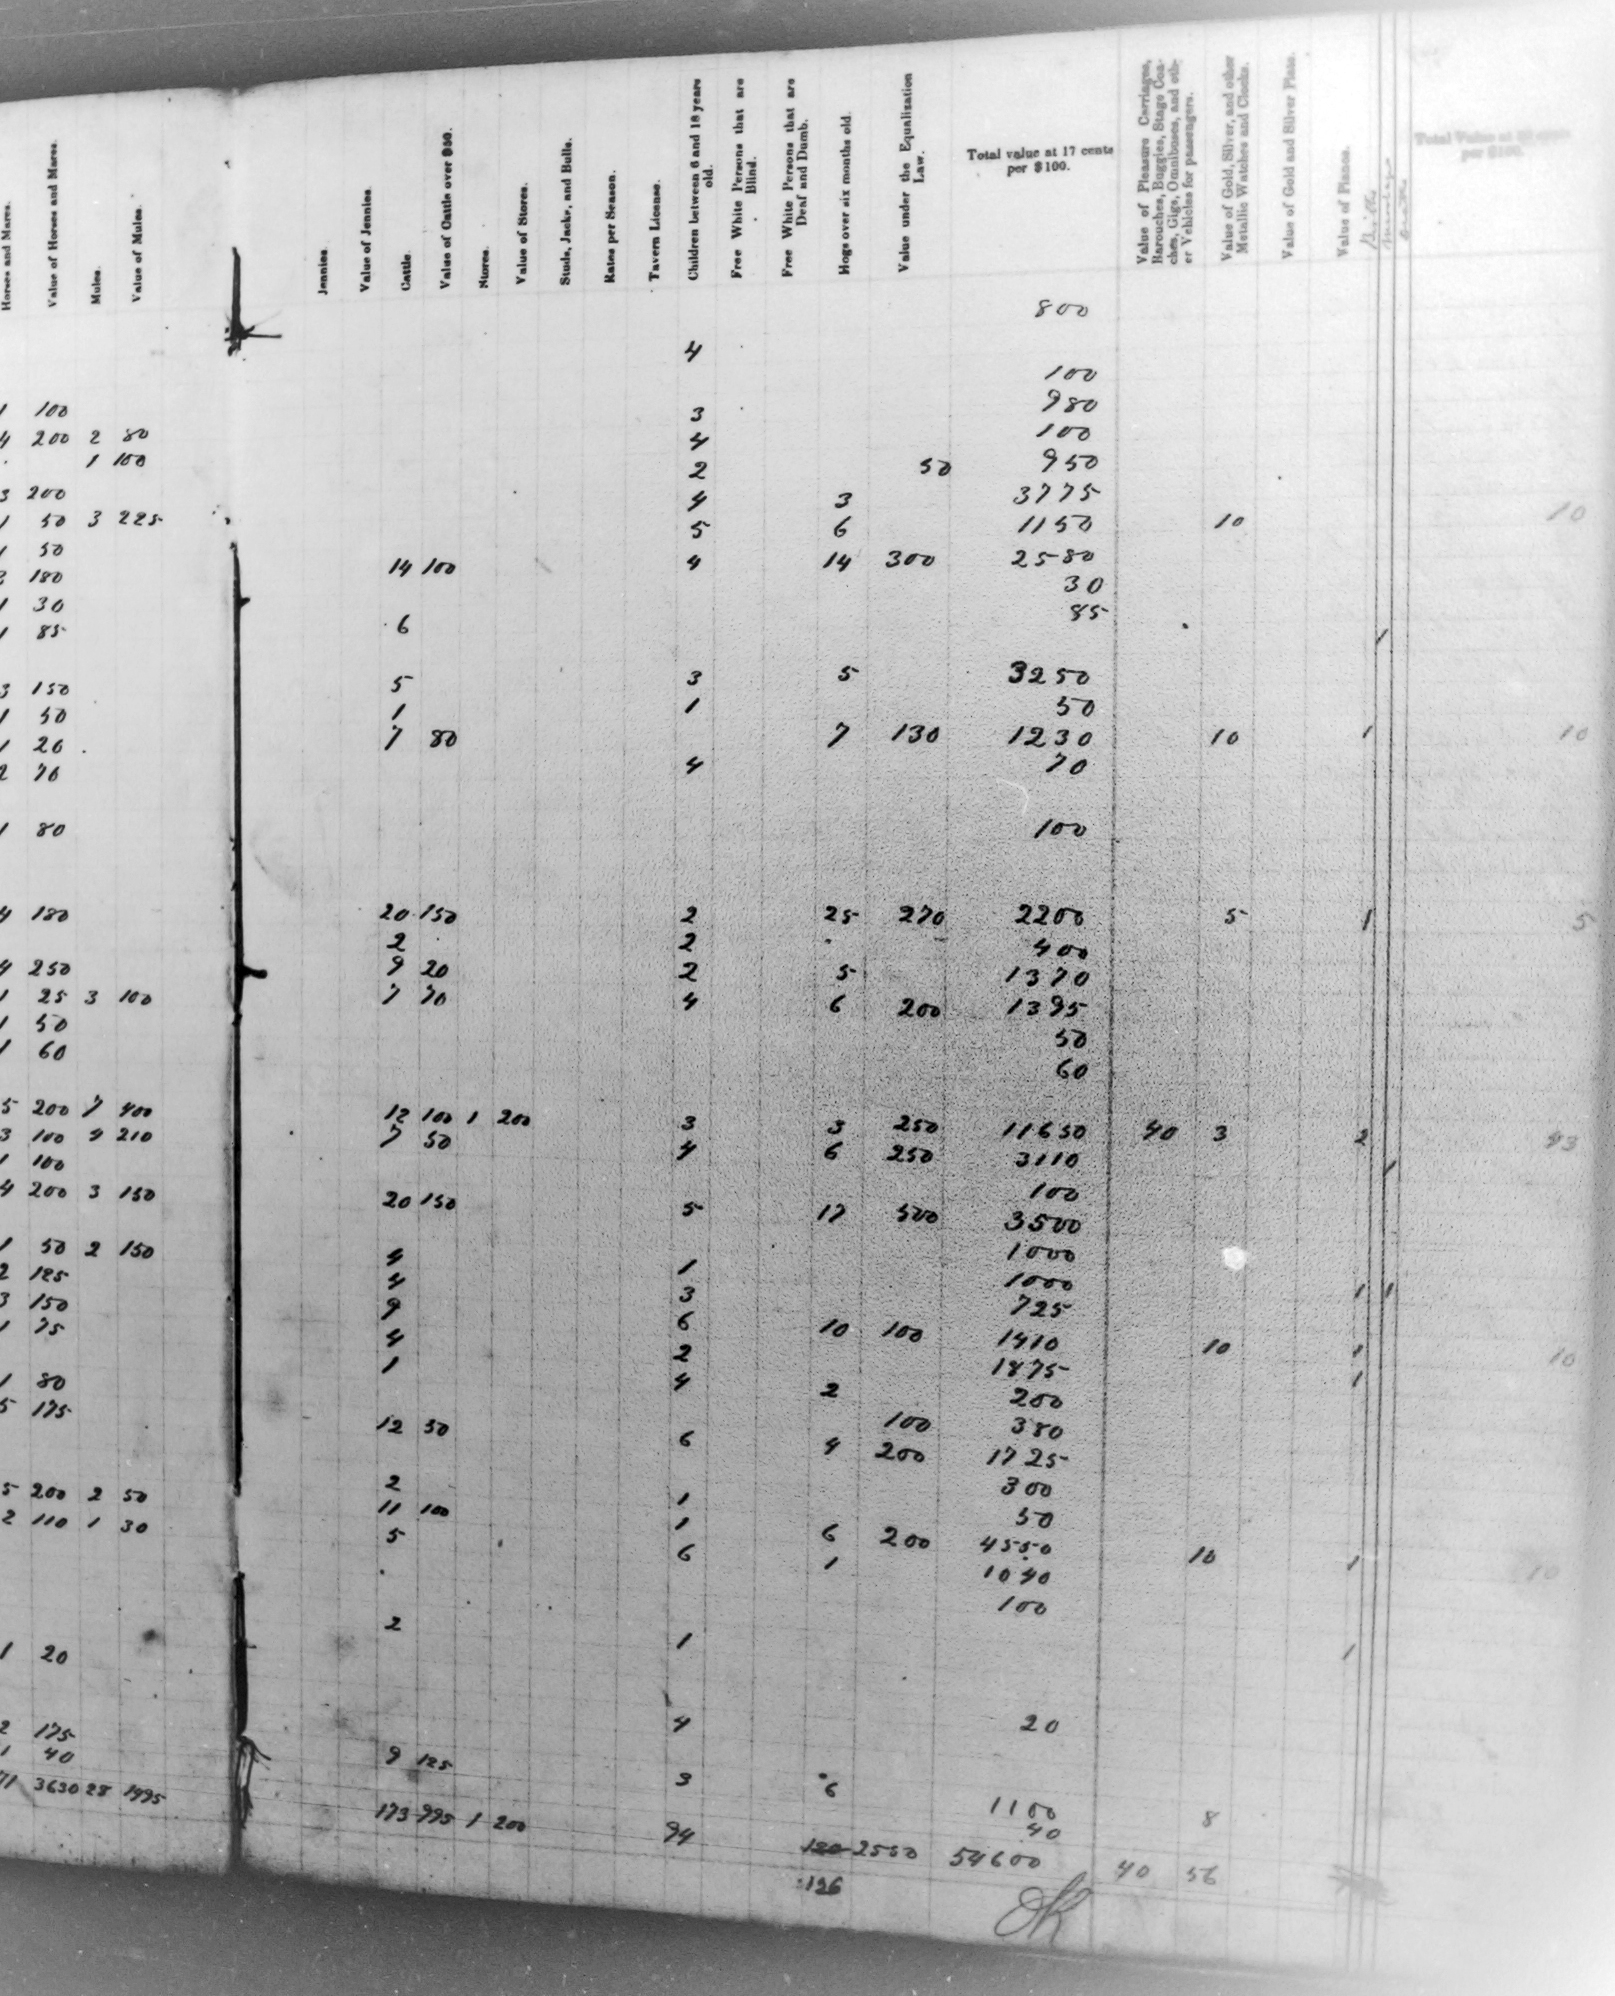 Horses and Mares.
Value of Horses and Mares.
Mules.
Value of Mules.
Jennies.
Value of Jennies.
Cattle.
Value of Cattle over $50.
Stores.
Value of Stores.
Studs, Jacks, and Bulls.
Rates per Season.
Tavern License.
Children between 6 and 18 years old.
Free White Persons that are Blind.
Free White Persons that are Deaf and Dumb.
Hogs over six months old.
Value under the Equalization Law.
Total value at 17 cents per $100.
Value of Pleasure Carriages, Barouches, Buggies, Stage Coaches, Gigs, Omnibuses, and other Vehicles for passengers.
Value of Gold, Silver, and other Metallic Watches and Clocks.
Value of Gold and Silver Plate.
Value of Pianos.
800
4
100
1 100 3 980
4 200 2 80 4 100
1 100 2 50 950
3 200 4 3 3775
1 50 3 225 5 6 1150 10 10
1 50 14 100 4 14 300 2580
2 180 30
1 30 85
1 85 6 1
3 150 5 3 5 3250
1 50 1 1 50
1 20 7 80 7 130 1230 10 1 10
2 70 4 70
1 80 100
4 180 20 150 2 25 270 2200 5 1 5
2 2 400
4 250 9 20 2 5 1370
1 25 3 100 7 70 4 6 200 1395
1 50 50
1 60 60
5 200 7 400 12 100 1 200 3 3 250 11650 40 3 2 43
3 100 4 210 7 50 4 6 250 3110
1 100 100 1
4 200 3 150 20 150 5 17 500 3500
1000
1 50 2 150 4 1 1000
2 125 4 3 725 1 1
3 150 9 6 10 100 1410 10 1 10
1 75 4 2 1875 1
1 4 2 200
1 80 100 380
5 175 12 50 6 4 200 1725
300
2 1 50
5 200 2 50 11 100 1 6 200 4550 10 1 10
2 110 1 30 5 6 1 1040
100
2 1 1
1 20 4 20
2 175 9 125 3 6 1100 8
1 40 40
71 3630 28 1995 173 995 1 200 94 120 2550 54600 40 56
126
OK